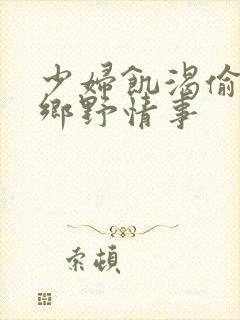 少婦飢渴偷
鄉野情事
索頓